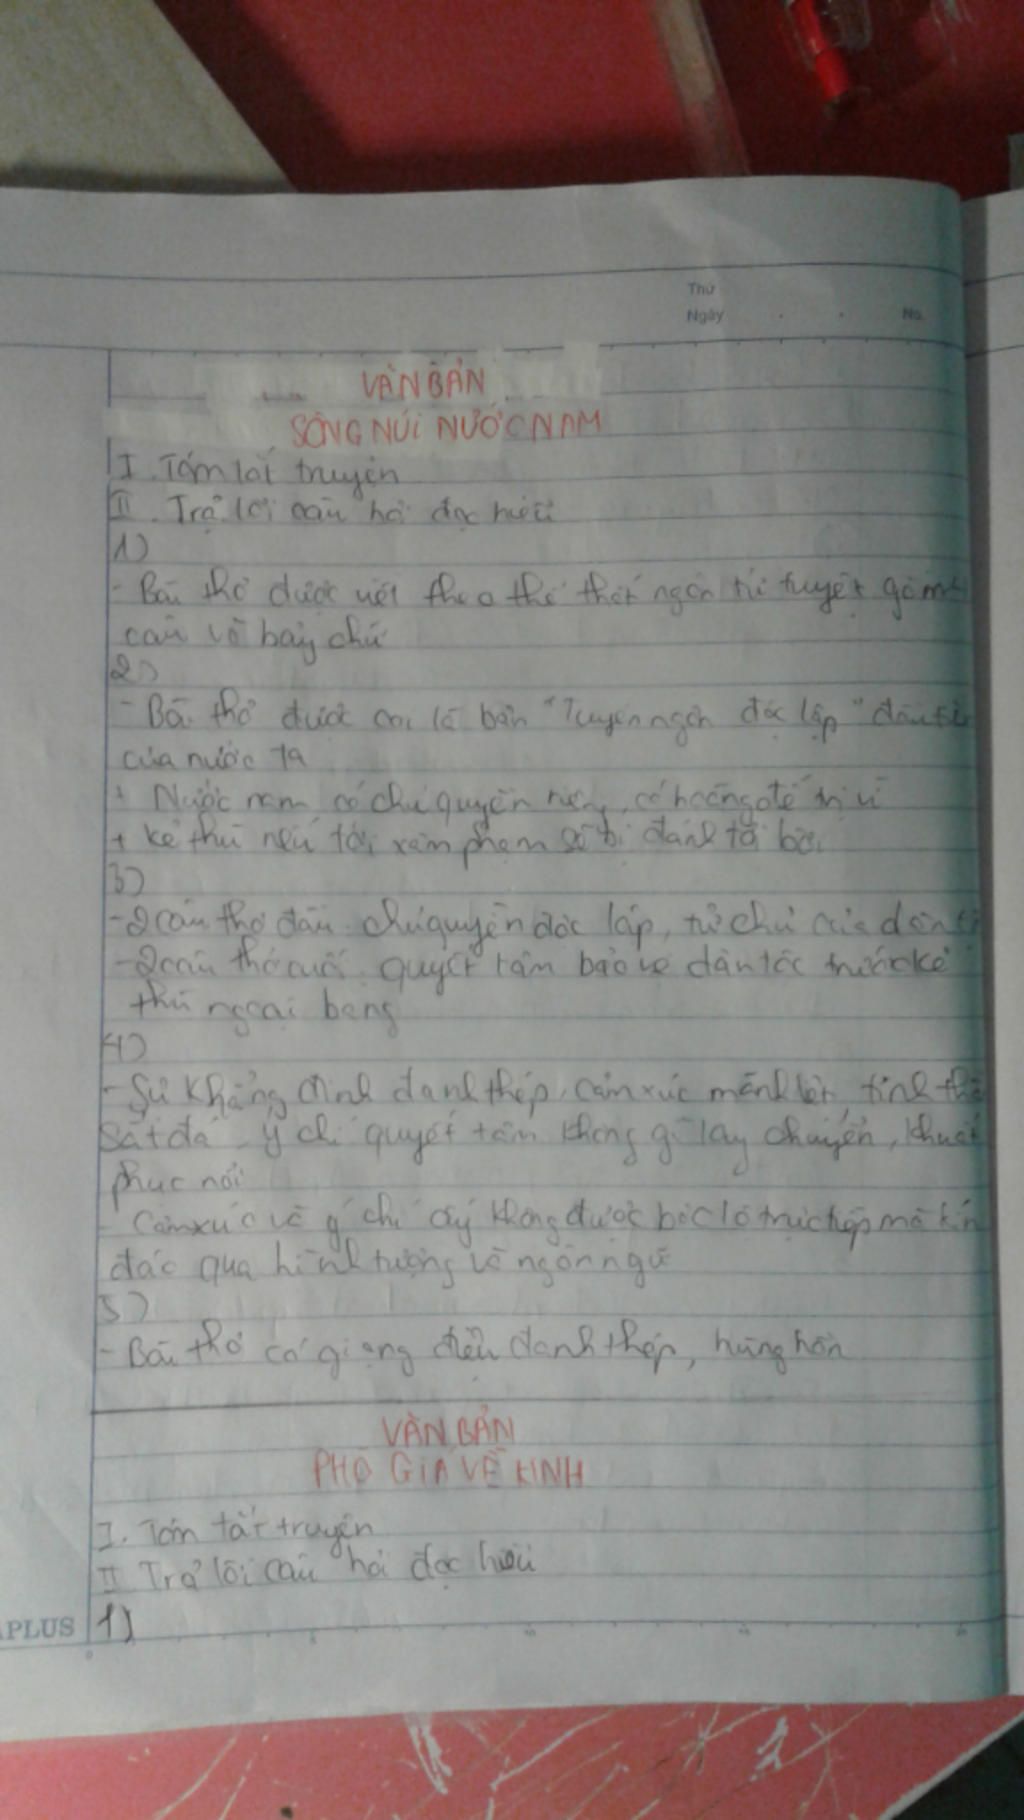 Thứ
Ngày No.
VĂN BẢN
SÔNG NÚI NƯỚC NAM
I. Tóm tắt truyện
II. Trả lời câu hỏi đọc hiểu
1)
- Bài thơ được viết theo thể thất ngôn tứ tuyệt gồm 4
câu và bảy chữ
2)
- Bài thơ được coi là bản "Tuyên ngôn độc lập" đầu tiên
của nước ta
+ Nước nam có chủ quyền riêng, có hoàng đế trị vì
+ kẻ thù nếu tới xâm phạm sẽ bị đánh tơi bời
3)
- 2 câu thơ đầu: chủ quyền độc lập, tự chủ của dân
- 2 câu thơ cuối: quyết tâm bảo vệ dân tộc trước kẻ
thù ngoại bang
4)
- Sự khẳng định đanh thép, cảm xúc mãnh liệt, tinh thần
sắt đá, ý chí quyết tâm không gì lay chuyển, khuất
phục nổi
- Cảm xúc và ý chí ấy không được bộc lộ trực tiếp mà kín
đáo qua hình tượng và ngôn ngữ
5)
- Bài thơ có giọng điệu đanh thép, hùng hồn
VĂN BẢN
PHÒ GIÁ VỀ KINH
I. Tóm tắt truyện
II Trả lời câu hỏi đọc hiểu
1)
APLUS
0 5 10